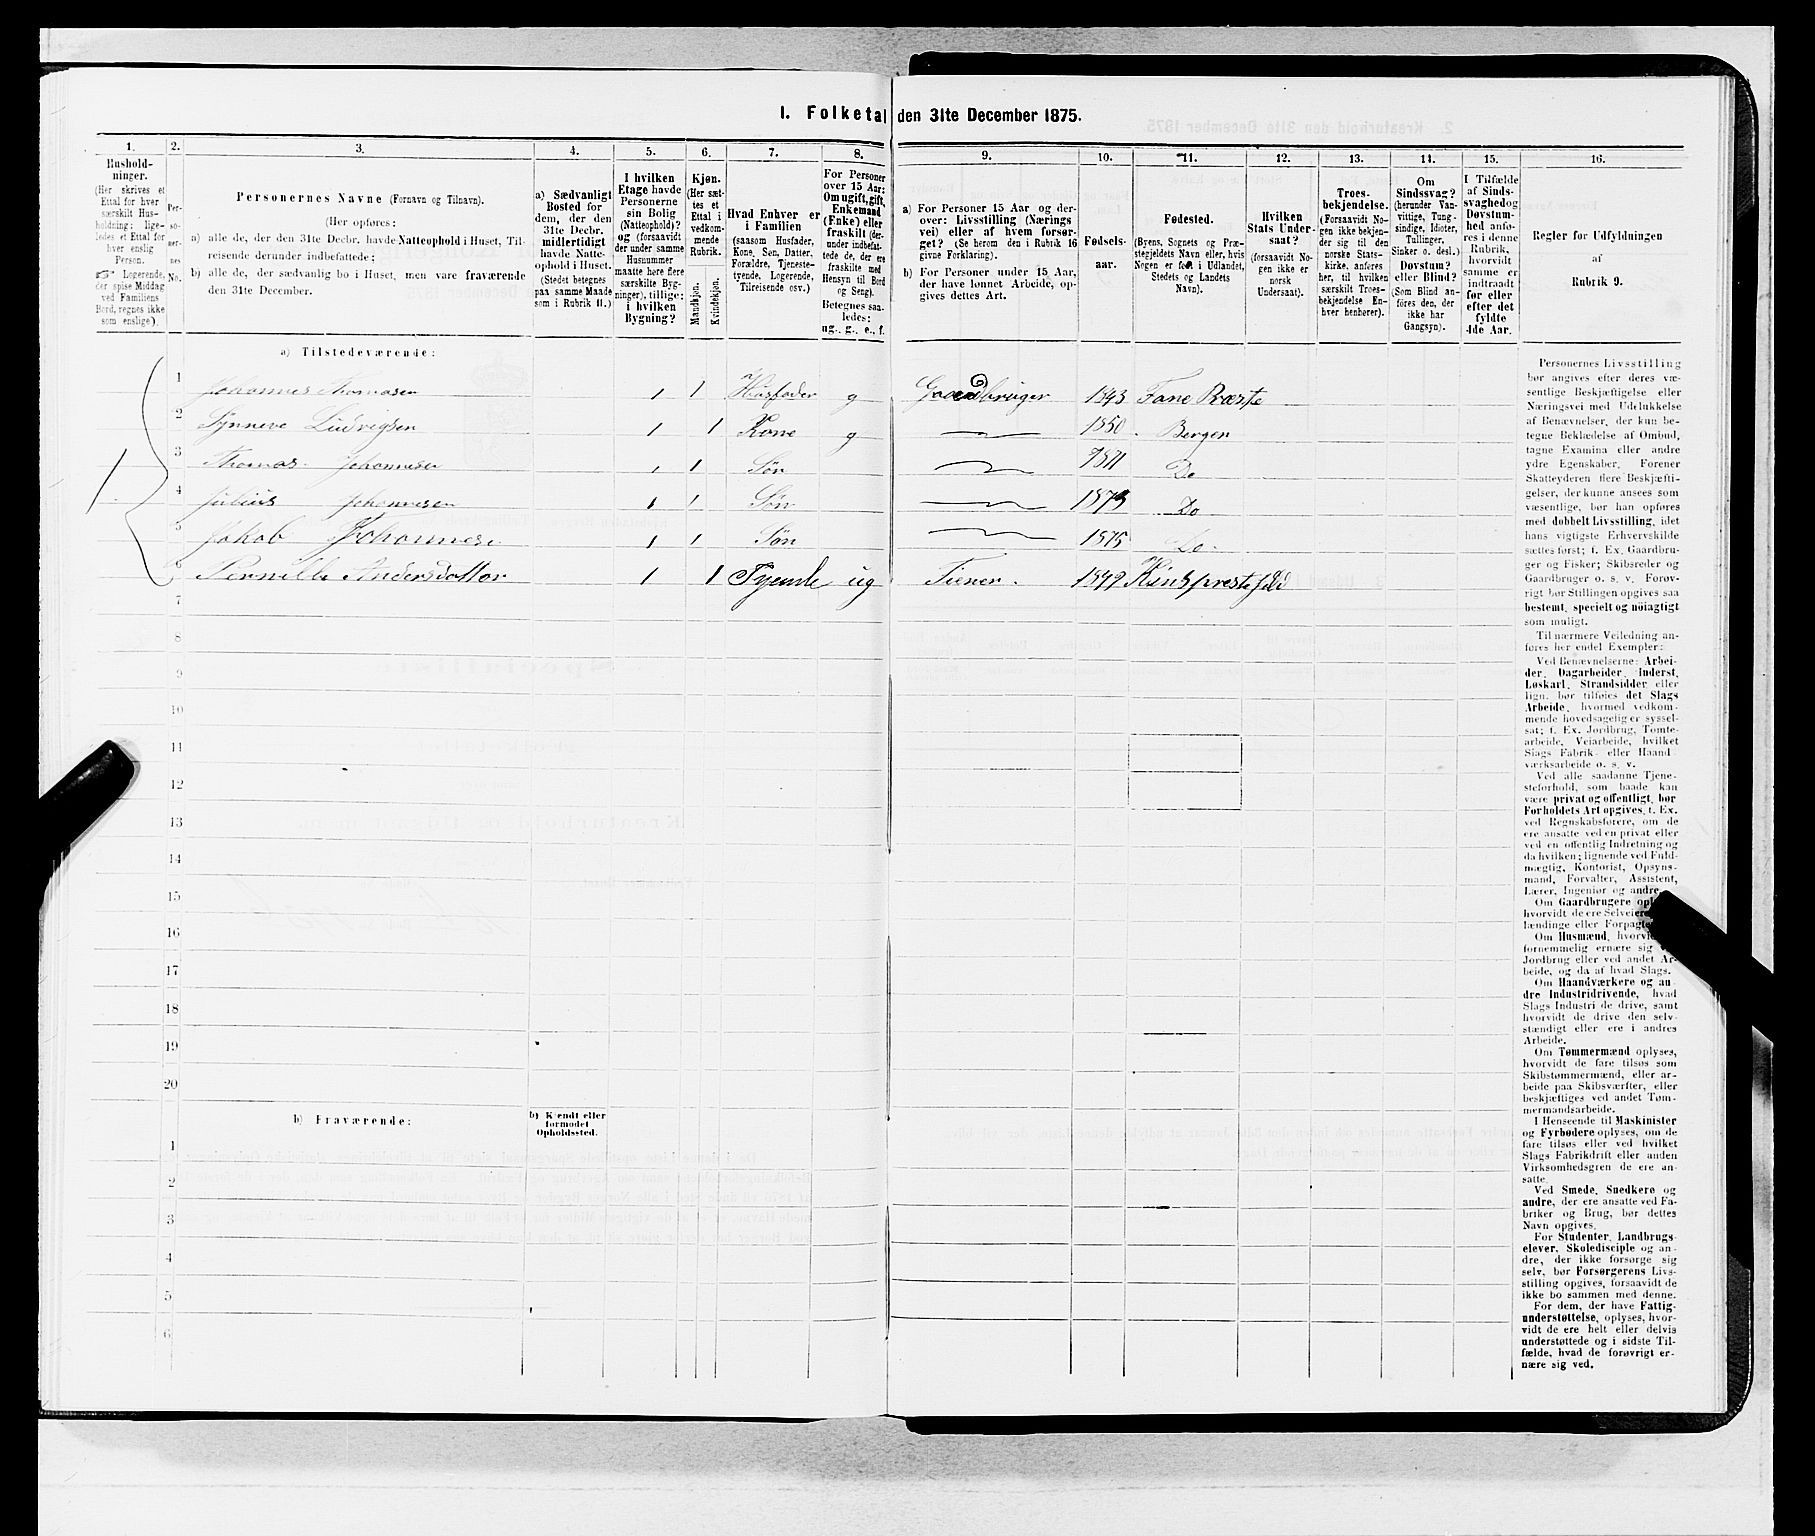 1. Folketal den 31te December 1875.
1.
Hushold-
ninger.
(Her skrives et
Ettal for hver
særskilt Hus-
holdning; lige-
ledes et Ettal for
hver enslig
Person.
☞ Logerende,
der spise Middag
ved Familiens
Bord, regnes ikke
som enslige).
2.
Per-
so-
ner-
nes
No.
3.
Personernes Navne (Fornavn og Tilnavn).
(Her opføres:
a) alle de, der den 31te Decbr. havde Natteophold i Huset, Til-
reisende derunder indbefattede;
b) alle de, der sædvanlig bo i Huset, men vare fraværende
den 31te December.
4.
a) Sædvanligt
Bosted for
dem, der den
31te Decbr.
midlertidigt
havde Natte-
ophold i Huset.
(Stedet betegnes
paa samme Maade
som i Rubrik 11.)
5.
I hvilken
Etage havde
Personerne
sin Bolig
(Natteophold)?
og (forsaavidt
der under samme
Husnummer
maatte høre flere
særskilte Byg-
ninger), tillige:
i hvilken
Bygning?
6.
Kjøn.
(Her sæt-
tes et
Ettal i
vedkom-
mende
Rubrik.
Mandkjøn.
Kvindekjøn.
7.
Hvad Enhver er
i Familien
(saasom Husfader,
Kone, Søn, Datter,
Forældre, Tjeneste-
tyende, Logerende,
Tilreisende osv.)
8.
For Personer
over 15 Aar:
Om ugift, gift,
Enkemand
(Enke) eller
fraskilt (der-
under indbefat-
tede de, der ere
fraskilte med
Hensyn til Bord
og Seng).
Betegnes saa-
ledes:
ug., g., e., f.
9.
a) For Personer 15 Aar og der-
over: Livsstilling (Nærings
vei) eller af hvem forsør-
get? (Se herom den i Rubrik 16
givne Forklaring).
b) For Personer under 15 Aar,
der have lønnet Arbeide, op-
gives dettes Art.
10.
Fødsels-
aar.
11.
Fødested.
(Byens, Sognets og Præ-
stegjeldets Navn eller, hvis
Nogen er født i Udlandet,
Stedets og Landets
Navn).
12.
Hvilken
Stats Under-
saat?
(forsaavidt No-
gen ikke er
norsk
Undersaat).
13.
Troes-
bekjendelse.
(Forsaavidt No-
gen ikke bekjen-
der sig til den
norske Stats-
kirke, anføres
her, til hvilken
særskilt Troes-
bekjendelse En-
hver henhører).
14.
Om
Sindssvag?
(herunder Van-
vittige, Tung-
sindige, Idioter,
Tullinger,
Sinker o. desl.)
Døvstum?
eller Blind?
(Som Blind an-
føres den, der
ikke har
Gangsyn).
15.
I Tilfælde
af Sinds-
svaghed og
Døvstum-
hed anfø-
res i denne
Rubrik,
hvorvidt
samme er
indtraadt
før eller
efter det
fyldte
4de Aar.
16.
Regler for Udfyldningen
af
Rubrik 9.
a) Tilstedeværende:
1.
1 Johannes Thomasen 1 1 Husfader g Gaardbruger 1843 Fane Præste
2 Synneve Ludvigsen 1 1 Kone g 1850 Bergen
3 Thomas Johannesen 1 1 Søn 1871 Do
4 Julius Johannesen 1 1 Søn 1873 Do
5 Jakob Johannese 1 1 Søn 1875 Do
6 Pernille Andersdatter 1 1 Tyende ug Tiener. 1849 Kinspresteg
7
8
9
10
11
12
13
14
15
16
17
18
19
20
b) Fraværende:
b) Kjendt eller
formodet
Opholdssted.
1
2
3
4
5
6
Personernes Livsstilling
bør angives efter deres væ-
sentlige Beskjæftigelse eller
Næringsvei med Udelukkelse
af Benævnelser, der kun be-
tegne Beklædelse af Ombud,
tagne Examina eller andre
ydre Egenskaber. Forener
Skatteyderen flere Beskjæfti-
gelser, der kunne ansees som
væsentlige, bør han opføres
med dobbelt Livsstilling, idet
hans vigtigste Erhvervskilde
sættes først; f. Ex. Gaardbru-
ger og Fisker; Skibsreder og
Gaardbruger o. s. v. Forøv-
rigt bør Stillingen opgives saa
bestemt, specielt og nøiagtigt
som muligt.
Til nærmere Veiledning an-
føres her endel Exempler:
Ved Benævnelserne: Arbei-
der, Dagarbeider, Inderst,
Løskarl, Strandsidder eller
lign. bør tilføies det Slags
Arbeide, hvormed vedkom-
mende hovedsagelig er syssel-
sat; f. Ex. Jordbrug, Tomte-
arbeide, Veiarbeide, hvilket
Slags Fabrik- eller Haand-
værksarbeide o. s. v.
Ved alle saadanne Tjene-
steforhold, som baade kan
være privat og offentligt, bør
Forholdets Art opgives, f. Ex.
ved Regnskabsførere, om de
ere ansatte ved en privat eller
ved en offentlig Indretning og
da hvilken; lignende ved Fuld-
mægtig, Kontorist, Opsyns-
mand, Forvalter, Assistent,
Lærer, Ingeniør og andre.
Om Gaardbrugere
hvorvidt de ere Selveiere
lændinge eller
Om Husmænd,
fornemmelig ernære sig
Jordbrug eller ved andet Ar-
beide, og da af hvad Slags.
Om Haandværkere og an-
dre Industridrivende, hvad
Slags Industri de drive, samt
hvorvidt de drive den selv-
stændigt eller ere i andres
Arbeide.
Om Tømmermænd oplyses,
hvorvidt de fare tilsøs som
Skibstømmermænd, eller ar-
beide paa Skibsværfter, eller
beskjæftiges ved andet Tøm-
mermandsarbeide.
I Henseende til Maskinister
og Fyrbødere oplyses, om de
fare tilsøs eller ved hvilket
Slags Fabrikdrift eller anden
Virksomhedsgren de ere an-
satte.
Ved Smede, Snedkere og
andre, der ere ansatte ved Fa-
briker og Brug, bør dettes
Navn opgives.
For Studenter, Landbrugs-
elever, Skoledisciple og an-
dre, der ikke forsørge sig
selv, bør Forsørgerens Livs-
stilling opgives, forsaavidt de
ikke bo sammen med denne.
For dem, der have Fattig-
understøttelse, oplyses, hvor-
vidt de ere helt eller delvis
understøttede og i sidste Til-
fælde, hvad de forøvrigt er-
nære sig ved.